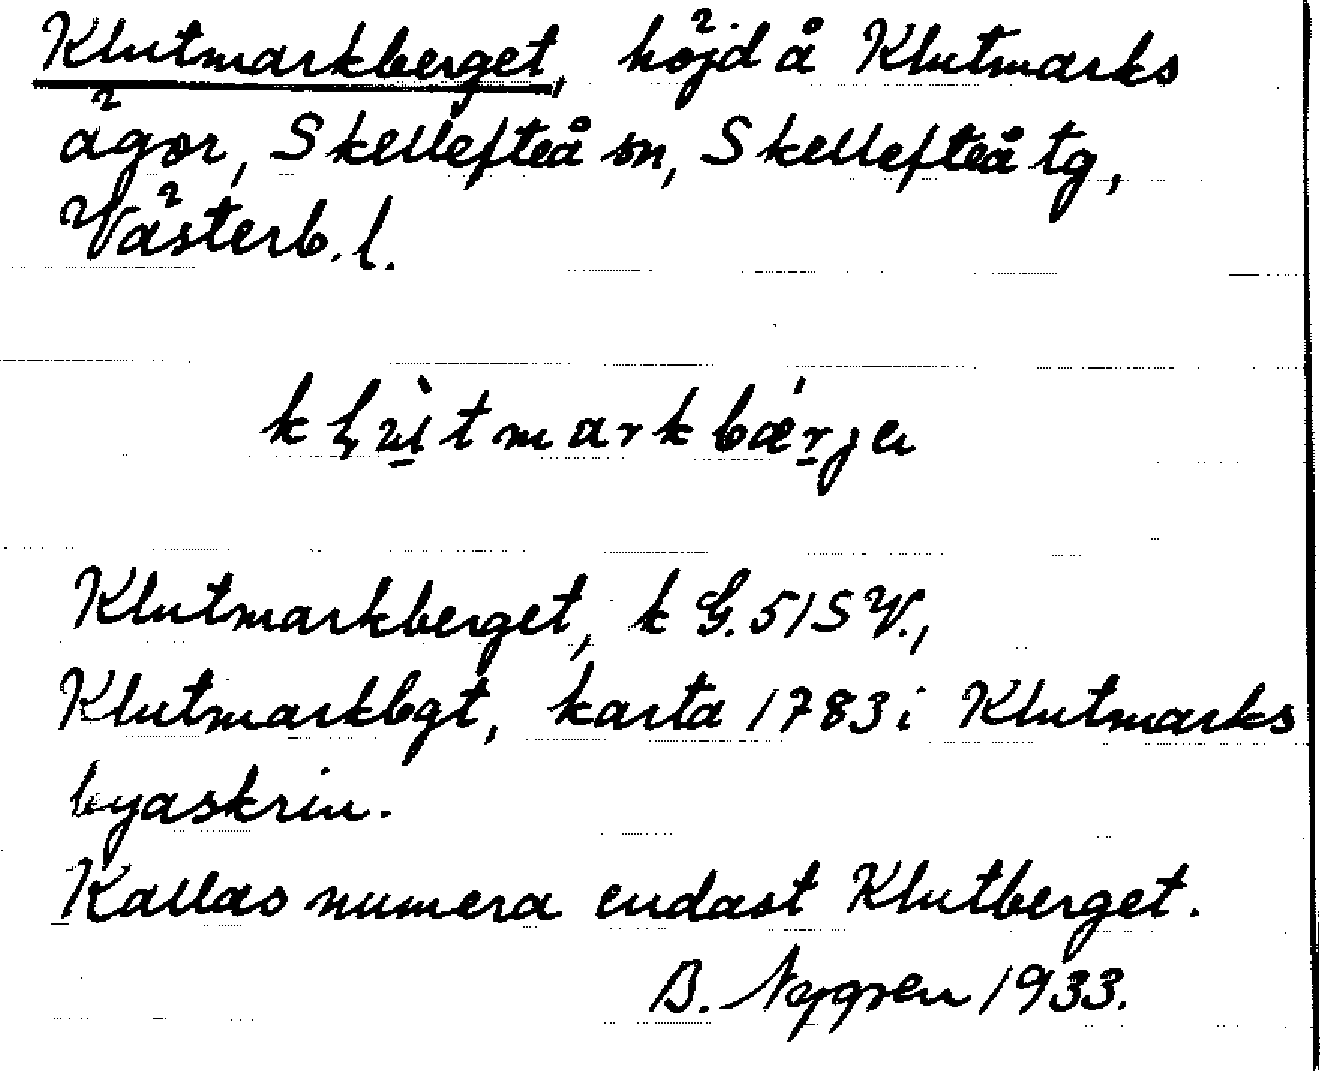 Klutmarkberget, höjd å Klutmarks
ägor, Skellefteå sn, Skellefteå tg,
Västerb. l.
klù̱tmarkbæ̀ṟja
Klutmarkberget, k G. 51 S V.,
Klutmarkbgt, karta 1783 i Klutmarks
byaskrin.
Kallas numera endast Klutberget.
B. Nygren 1933.